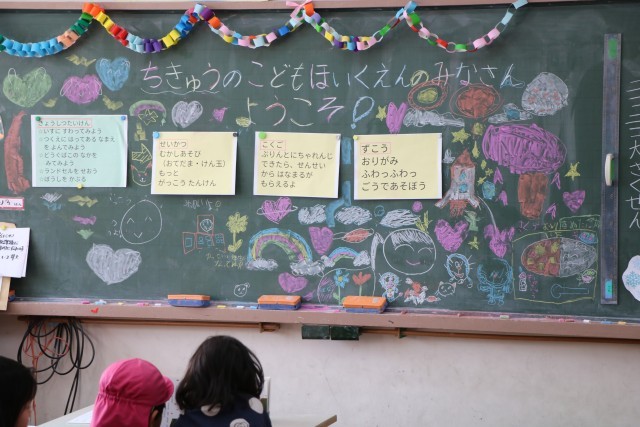 ちきゅうのこどもほいくえんのみなさん
ようこそ!
きょうしつたいけん
いすに すわってみよう
つくえに はってある なまえ
を よんでみよう
どうぐばこの なかを
みてみよう
ランドセルを せおう
ぼうしを かぶる
せいかつ
むかしあそび
(おてだま・けん玉)
もっと
がっこう たんけん
こくご
ぷりんとにちゃれんじ
できたら、せんせい
から はなまるが
もらえるよ
ずこう
おりがみ
ふわっふわっ
ごうであそぼう